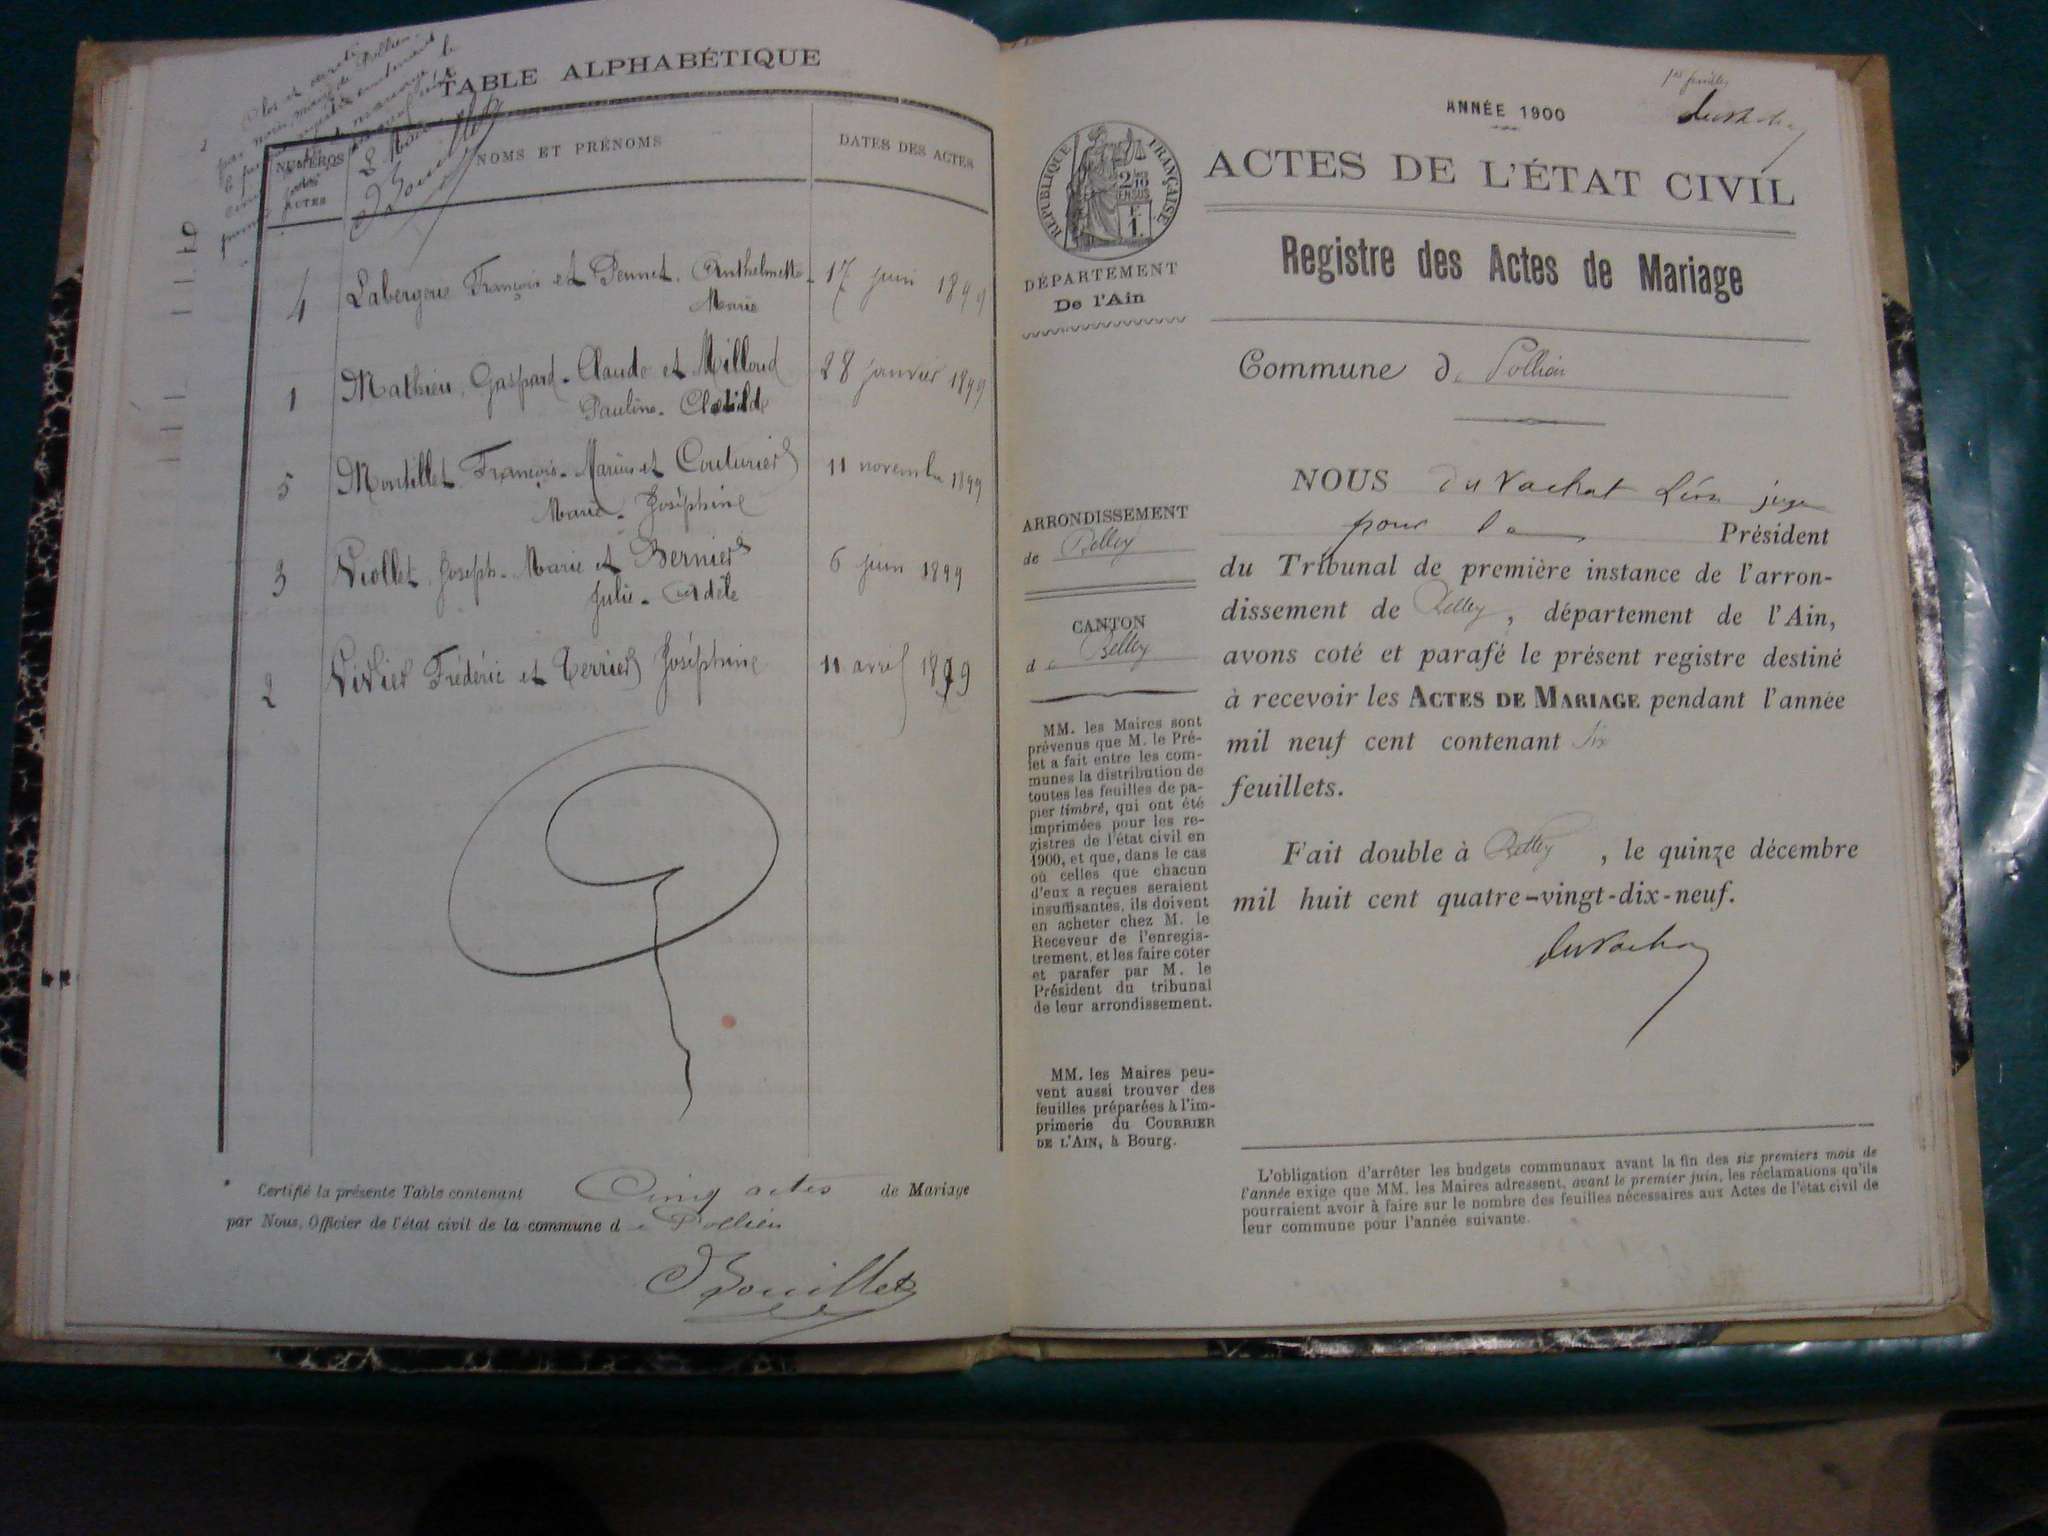 Clos et arrêté
par nous, maire de Pollien
TABLE ALPHABÉTIQUE
NUMÉROS
des
ACTES
NOMS ET PRÉNOMS
DATES DES ACTES
4 Labergerie François et Pennet Anthelmette 17 juin 1899
Marie
1 Mathieu, Gaspard-Claude et Milloud 28 janvier 1899
Pauline-Clotilde
5 Montillet François-Marius et Couturier 11 novembre 1899
Marie-Joséphine
3 Viollet, Joseph-Marie et Bernier 6 juin 1899
Julie-Adèle
2 Vivier Frédéric et Terrier Joséphine 11 avril 1899
Certifié la présente Table contenant Cinq actes de Mariage
par Nous, Officier de l'état civil de la commune de Pollien
Bouillet
1er feuillet
duvachat
ANNÉE 1900
ACTES DE L'ÉTAT CIVIL
RÉPUBLIQUE FRANÇAISE
2/10 EN SUS
F. 1.
Registre des Actes de Mariage
DÉPARTEMENT
De l'Ain
Commune de Pollien
NOUS du Vachat Léon juge
pour le Président
du Tribunal de première instance de l'arron-
dissement de Belley, département de l'Ain,
avons coté et parafé le présent registre destiné
à recevoir les ACTES DE MARIAGE pendant l'année
mil neuf cent contenant six
feuillets.
Fait double à Belley, le quinze décembre
mil huit cent quatre-vingt-dix-neuf.
duvachat
ARRONDISSEMENT
de Belley
CANTON
de Belley
MM. les Maires sont
prévenus que M. le Pré-
fet a fait entre les com-
munes la distribution de
toutes les feuilles de pa-
pier timbré, qui ont été
imprimées pour les re-
gistres de l'état civil en
1900, et que, dans le cas
où celles que chacun
d'eux a reçues seraient
insuffisantes, ils doivent
en acheter chez M. le
Receveur de l'enregis-
trement, et les faire coter
et parafer par M. le
Président du tribunal
de leur arrondissement.
MM. les Maires peu-
vent aussi trouver des
feuilles préparées à l'im-
primerie du COURRIER
DE L'AIN, à Bourg.
L'obligation d'arrêter les budgets communaux avant la fin des six premiers mois de
l'année exige que MM. les Maires adressent, avant le premier juin, les réclamations qu'ils
pourraient avoir à faire sur le nombre des feuilles nécessaires aux Actes de l'état civil de
leur commune pour l'année suivante.